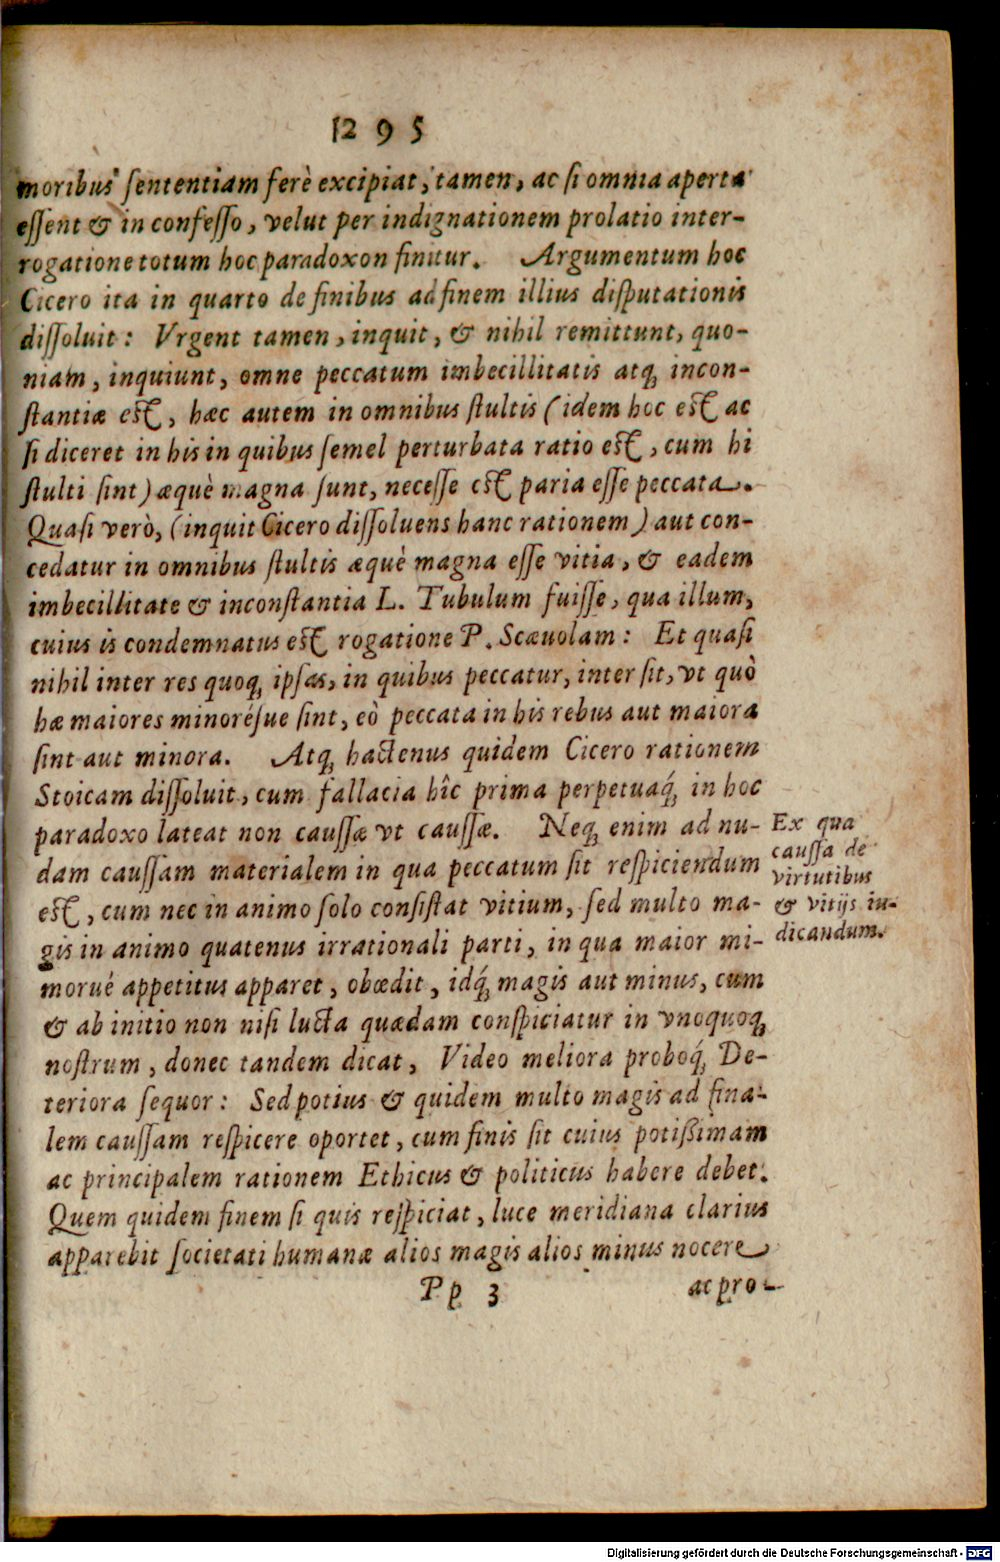 1295
moribus sententiam ferè excipiat, tamen, ac si omnia aperta
essent & in confesso, velut per indignationem prolatio inter-
rogatione totum hoc paradoxon finitur. Argumentum hoc
Cicero ita in quarto de finibus ad finem illius disputationis
dissoluit: Vrgent tamen, inquit, & nihil remittunt, quo-
niam, inquiunt, omne peccatum imbecillitatis atq; incon-
stantiæ est, hæc autem in omnibus stultis (idem hoc est ac
si diceret in his in quibus semel perturbata ratio est, cum hi
stulti sint) æquè magna sunt, necesse est paria esse peccata.
Quasi verò, (inquit Cicero dissoluens hanc rationem) aut con-
cedatur in omnibus stultis æquè magna esse vitia, & eadem
imbecillitate & inconstantia L. Tubulum fuisse, qua illum,
cuius is condemnatus est rogatione P. Scæuolam: Et quasi
nihil inter res quoq; ipsas, in quibus peccatur, inter sit, vt quò
hæ maiores minorésue sint, eò peccata in his rebus aut maiora
sint aut minora. Atq; hactenus quidem Cicero rationem
Stoicam dissoluit, cum fallacia hîc prima perpetuaq́; in hoc
paradoxo lateat non caussæ vt caussæ. Neq; enim ad nu-
dam caussam materialem in qua peccatum sit respiciendum
est, cum nec in animo solo consistat vitium, sed multo ma-
gis in animo quatenus irrationali parti, in qua maior mi-
morué appetitus apparet, obœdit, idq́; magis aut minus, cum
& ab initio non nisi lucta quædam conspiciatur in vnoquoq;
nostrum, donec tandem dicat, Video meliora proboq́; De-
teriora sequor: Sed potius & quidem multo magis ad fina-
lem caussam respicere oportet, cum finis sit cuius potißimam
ac principalem rationem Ethicus & politicus habere debet.
Quem quidem finem si quis respiciat, luce meridiana clarius
apparebit societati humanæ alios magis alios minus nocere
Pp 3 ac pro-
Ex qua
caussa de
virtutibus
& vitijs iu-
dicandum.
Digitalisierung gefördert durch die Deutsche Forschungsgemeinschaft - DFG